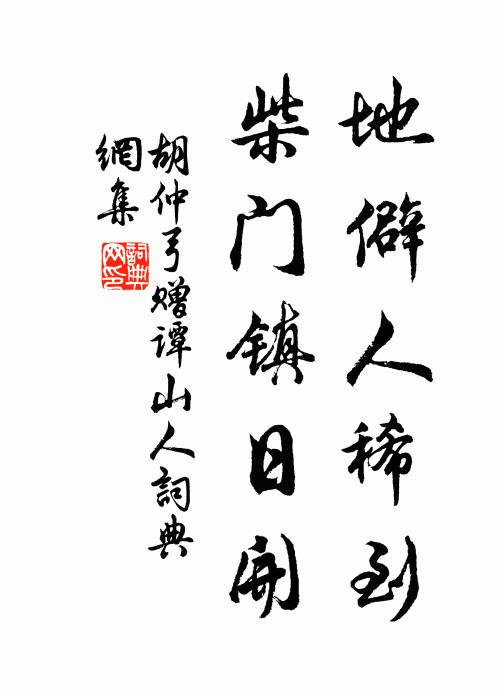 地僻人稀到
柴门镇日開
胡仲弓赠谭山人詞典
網集
詞典
网印